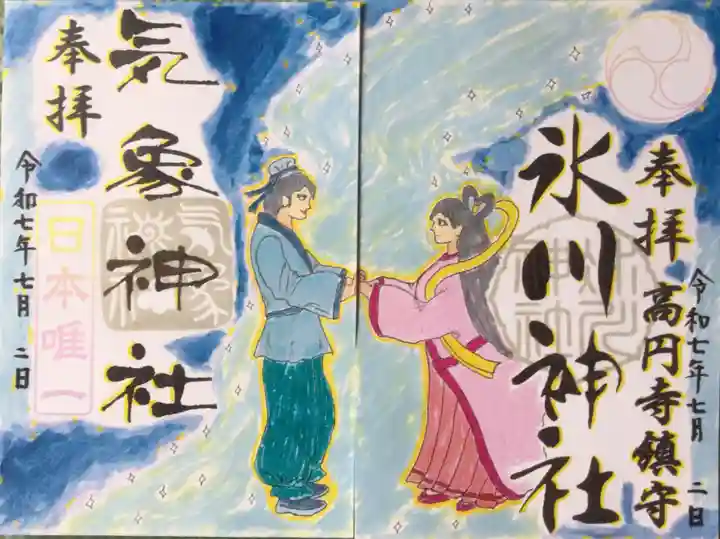 奉拝
高円寺鎮守
氷川神社
令和七年七月 二日
奉拝
気象神社
令和七年七月 二日
日本唯一